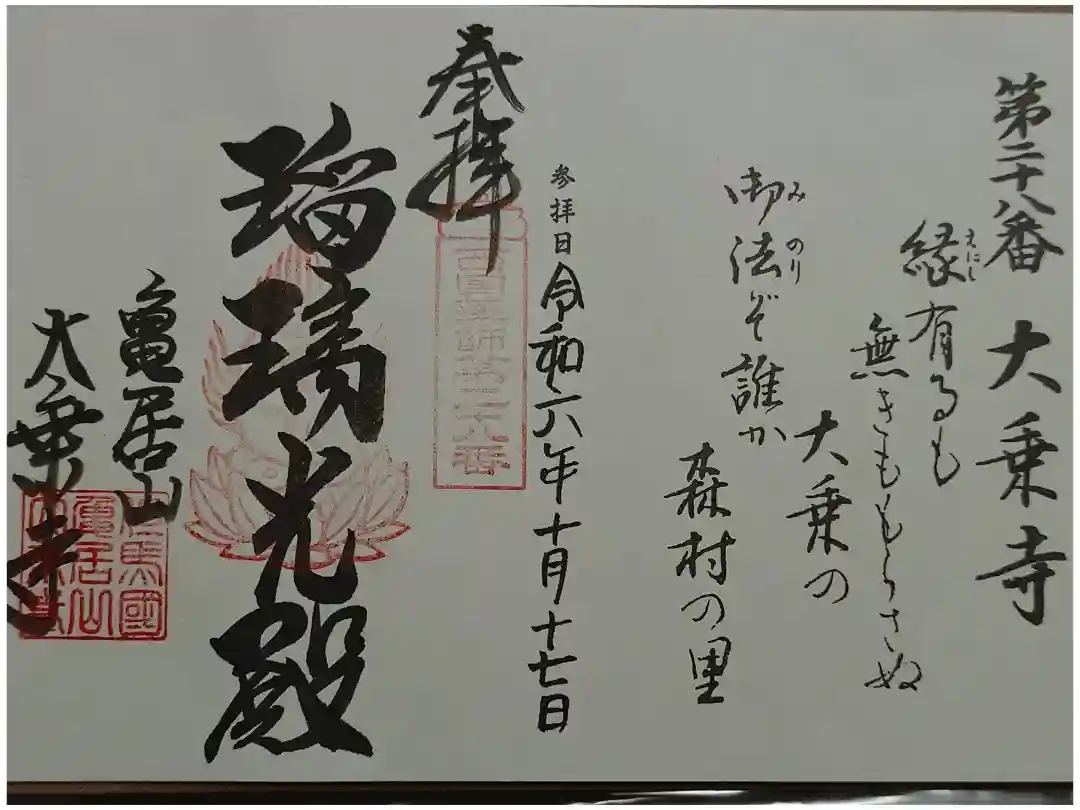 第二十八番 大乗寺
縁有るも
えにし
無きももらさぬ
大乗の
御法ぞ誰か
み のり
森村の里
参拝日 令和六年十月十七日
奉拝
西国薬師第二十八番
瑠璃光殿
亀居山
大乗寺
但馬國
亀居山